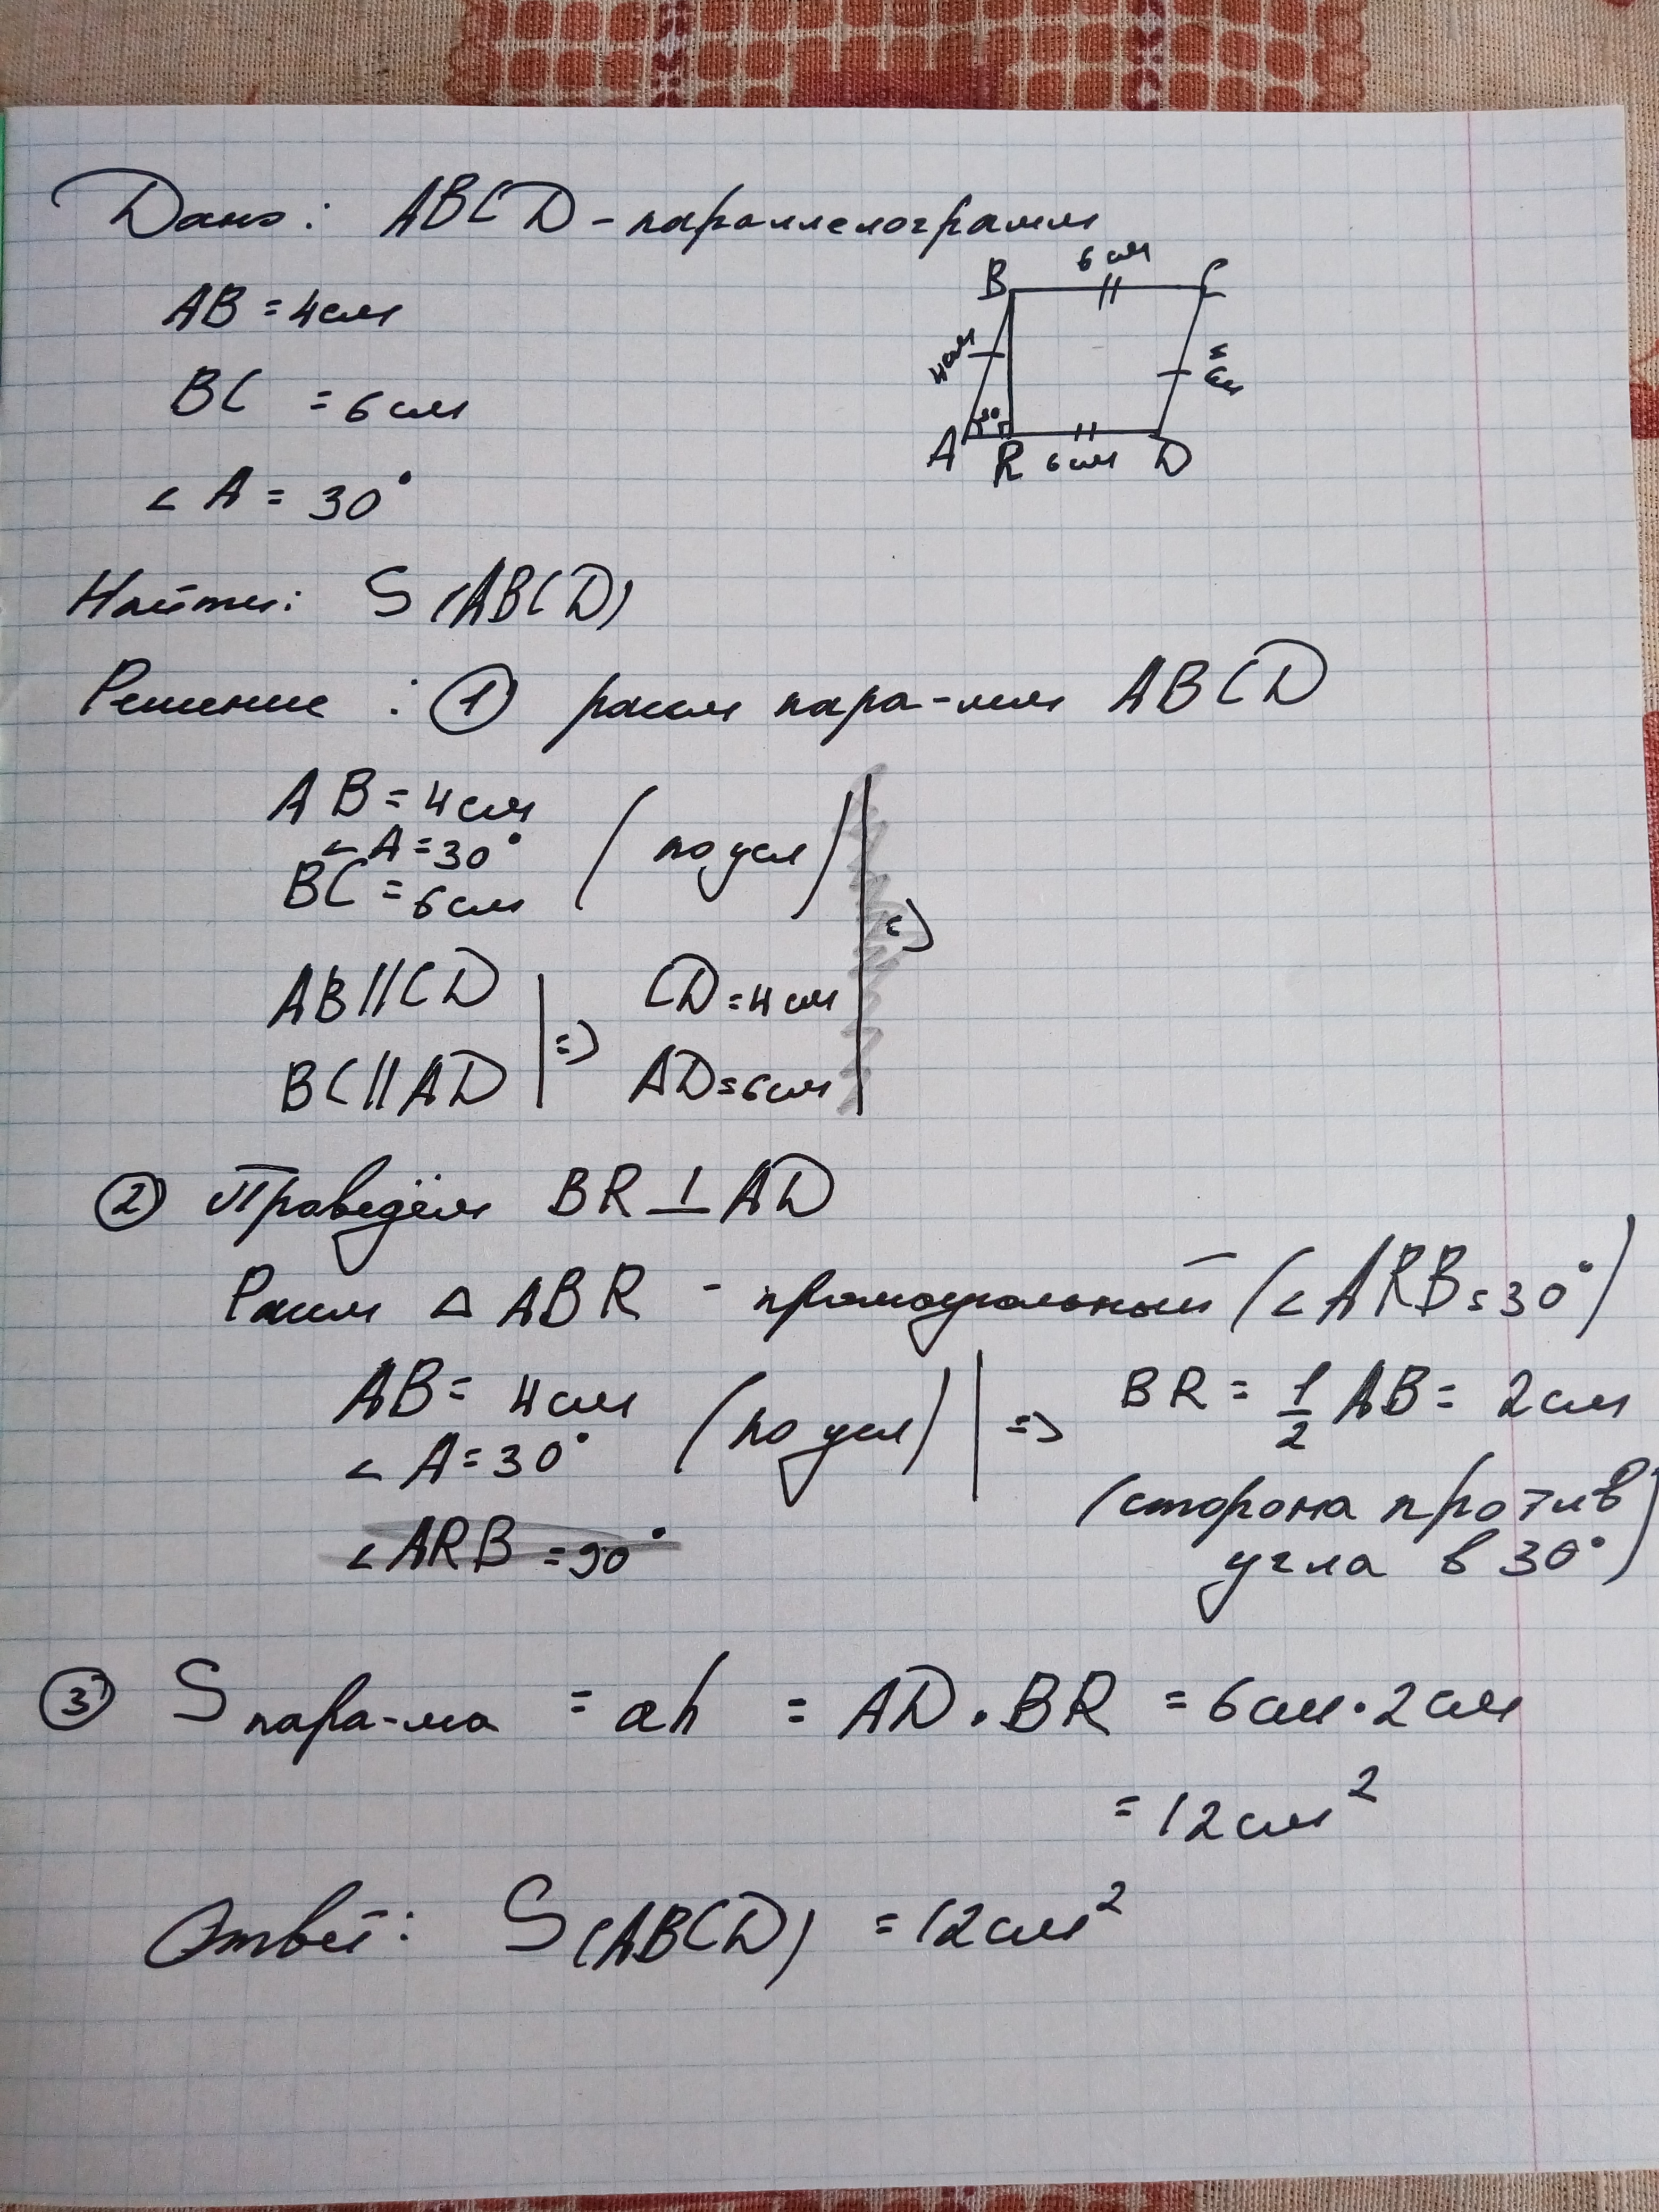 Дано: ABCD - параллелограмм
AB = 4 см
BC = 6 см
∠A = 30°
B 6 см C
4 см
A 30 R 6 см D
Найти: S(ABCD)
Решение: ① расм пара-мм ABCD
AB = 4 см
∠A = 30° (по усл)
BC = 6 см
=>
AB || CD CD = 4 см
=>
BC || AD AD = 6 см
② Проведём BR ⊥ AD
Расм △ ABR - прямоугольный (∠ARB = 30°)
AB = 4 см (по усл) => BR = 1/2 AB = 2 см
∠A = 30°
(сторона против
∠ARB = 90° угла в 30°)
③ S пара-ма = ah = AD · BR = 6 см · 2 см
= 12 см²
Ответ: S(ABCD) = 12 см²